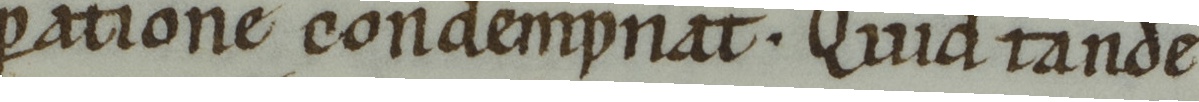 patione condempnat. Quid tande